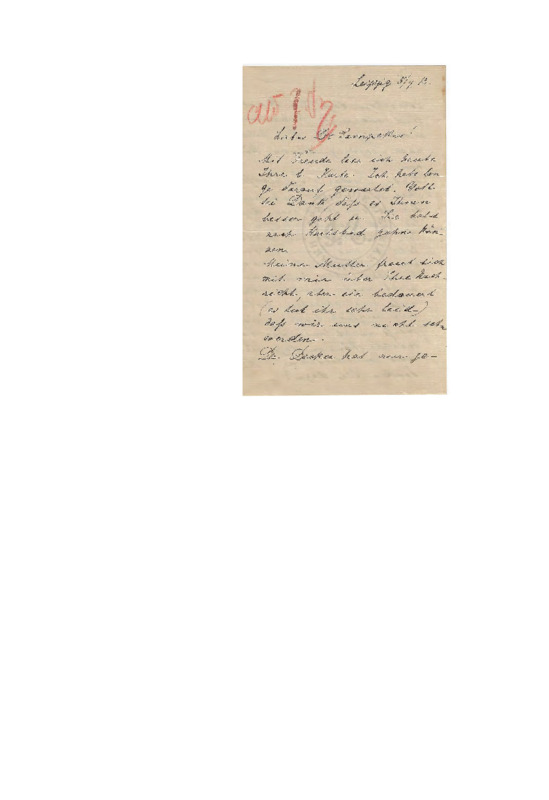 Leipzig
Mit Freude las ich heute
Ihre l. Karte. Ich habe lan
ge darauf gewartet. Gott
sei Dank daß es Ihnen
besser geht u. Sie bald
nach Karlsbad gehen kön-
nen.
Meine Mutter freut sich
mit mir über Ihre Nach-
richt, aber sie bedauert
(es tut ihr sehr leid)
daß wir uns nicht sehn
werden.
Dr. hat mir ge-